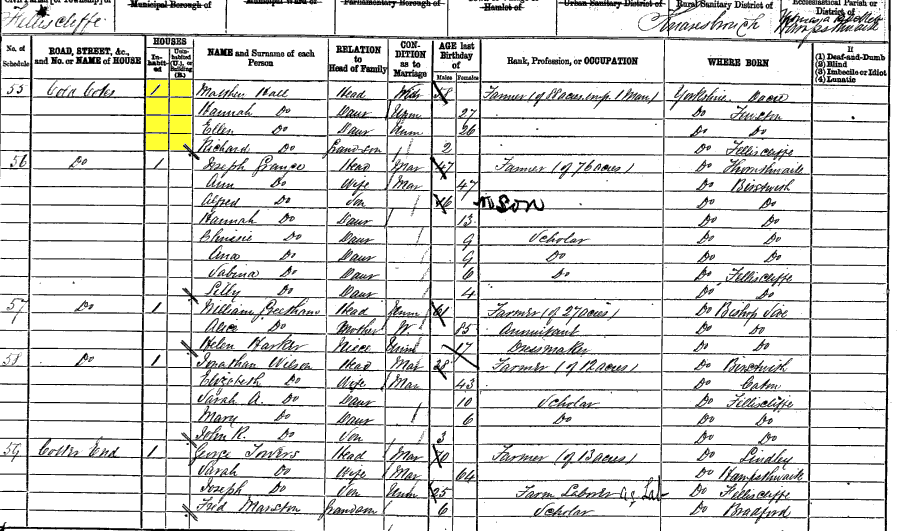 Civil Parish [or Township] of
Municipal Borough of
Municipal Ward of
Parliamentary Borough of
Town or Village or Hamlet of
Urban Sanitary District of
Rural Sanitary District of
Ecclesiastical Parish or District of
Felliscliffe
Knaresbrough
Hampsthwaite
No. of Schedule
ROAD, STREET, &c., and No. or NAME of HOUSE
HOUSES
Inhabited
Uninhabited (U.), or Building (B.)
NAME and Surname of each Person
RELATION to Head of Family
CONDITION as to Marriage
AGE last Birthday of
Males
Females
Rank, Profession, or OCCUPATION
WHERE BORN
If
(1) Deaf-and-Dumb
(2) Blind
(3) Imbecile or Idiot
(4) Lunatic
55 Cold Cotes 1 Matthew Hall Head 58 Farmer (of 18 acres emp. 1 Man) Yorkshire Dacre
Hannah Do Daur Unm 27 Do Fewston
Ellen Do Daur Unm 26 Do Do
Richard Do Grandson 2 Do Felliscliffe
56 Do 1 Joseph Grange Head Mar 47 Farmer (of 76 acres) Do Thornthwaite
Ann Do Wife Mar 47 Do Birstwith
Alfred Do Son 16 SON Do Do
Hannah Do Daur 13 Do Do
Do Daur 9 Scholar Do Do
Ana Do Daur 9 Do Do Do
Sabina Do Daur 6 Do Do Felliscliffe
Lilly Do Daur 4 Do Do
57 Do 1 William Beetham Head Unm 61 Farmer (of 27 acres) Do Bishop
Alice Do Mother W. 85 Annuitant Do Do
Helen Harker Niece Unm 17 Dressmaker Do Do
58 Do 1 Jonathan Wilson Head Mar 38 Farmer (of 12 acres) Do Birstwith
Elizabeth Do Wife Mar 43 Do
Sarah A. Do Daur 10 Scholar Do Felliscliffe
Mary Do Daur 6 Do Do Do
John R. Do Son 3 Do Do
59 End 1 George Towers Head Mar 70 Farmer (of 13 acres) Do Lindley
Sarah Do Wife Mar 64 Do Hampsthwaite
Joseph Do Son Unm 25 Farm Laborer Ag Lab Do Felliscliffe
Fred Marston Grandson 6 Scholar Do Bradford